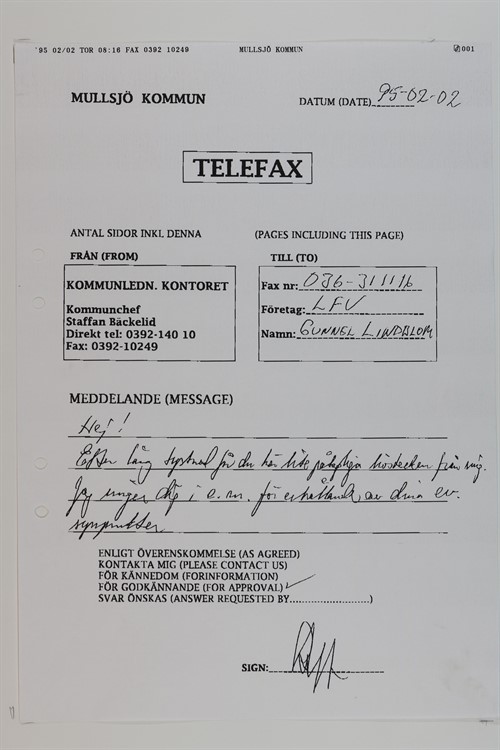 '95 02/02 TOR 08:16 FAX 0392 10249 MULLSJÖ KOMMUN 001
MULLSJÖ KOMMUN DATUM (DATE) 95-02-02
TELEFAX
ANTAL SIDOR INKL DENNA (PAGES INCLUDING THIS PAGE)
FRÅN (FROM) TILL (TO)
KOMMUNLEDN. KONTORET
Kommunchef
Staffan Bäckelid
Direkt tel: 0392-140 10
Fax: 0392-10249
Fax nr: 036-311116
Företag: LFV
Namn: GUNNEL LINDBLOM
MEDDELANDE (MESSAGE)
Hej!
Efter lång tystnad får du här lite livstecken från mig.
Jag ringer dig i e.m. för erhållande av dina ev.
synpunkter
ENLIGT ÖVERENSKOMMELSE (AS AGREED)
KONTAKTA MIG (PLEASE CONTACT US)
FÖR KÄNNEDOM (FORINFORMATION)
FÖR GODKÄNNANDE (FOR APPROVAL) ✓
SVAR ÖNSKAS (ANSWER REQUESTED BY....................)
SIGN: